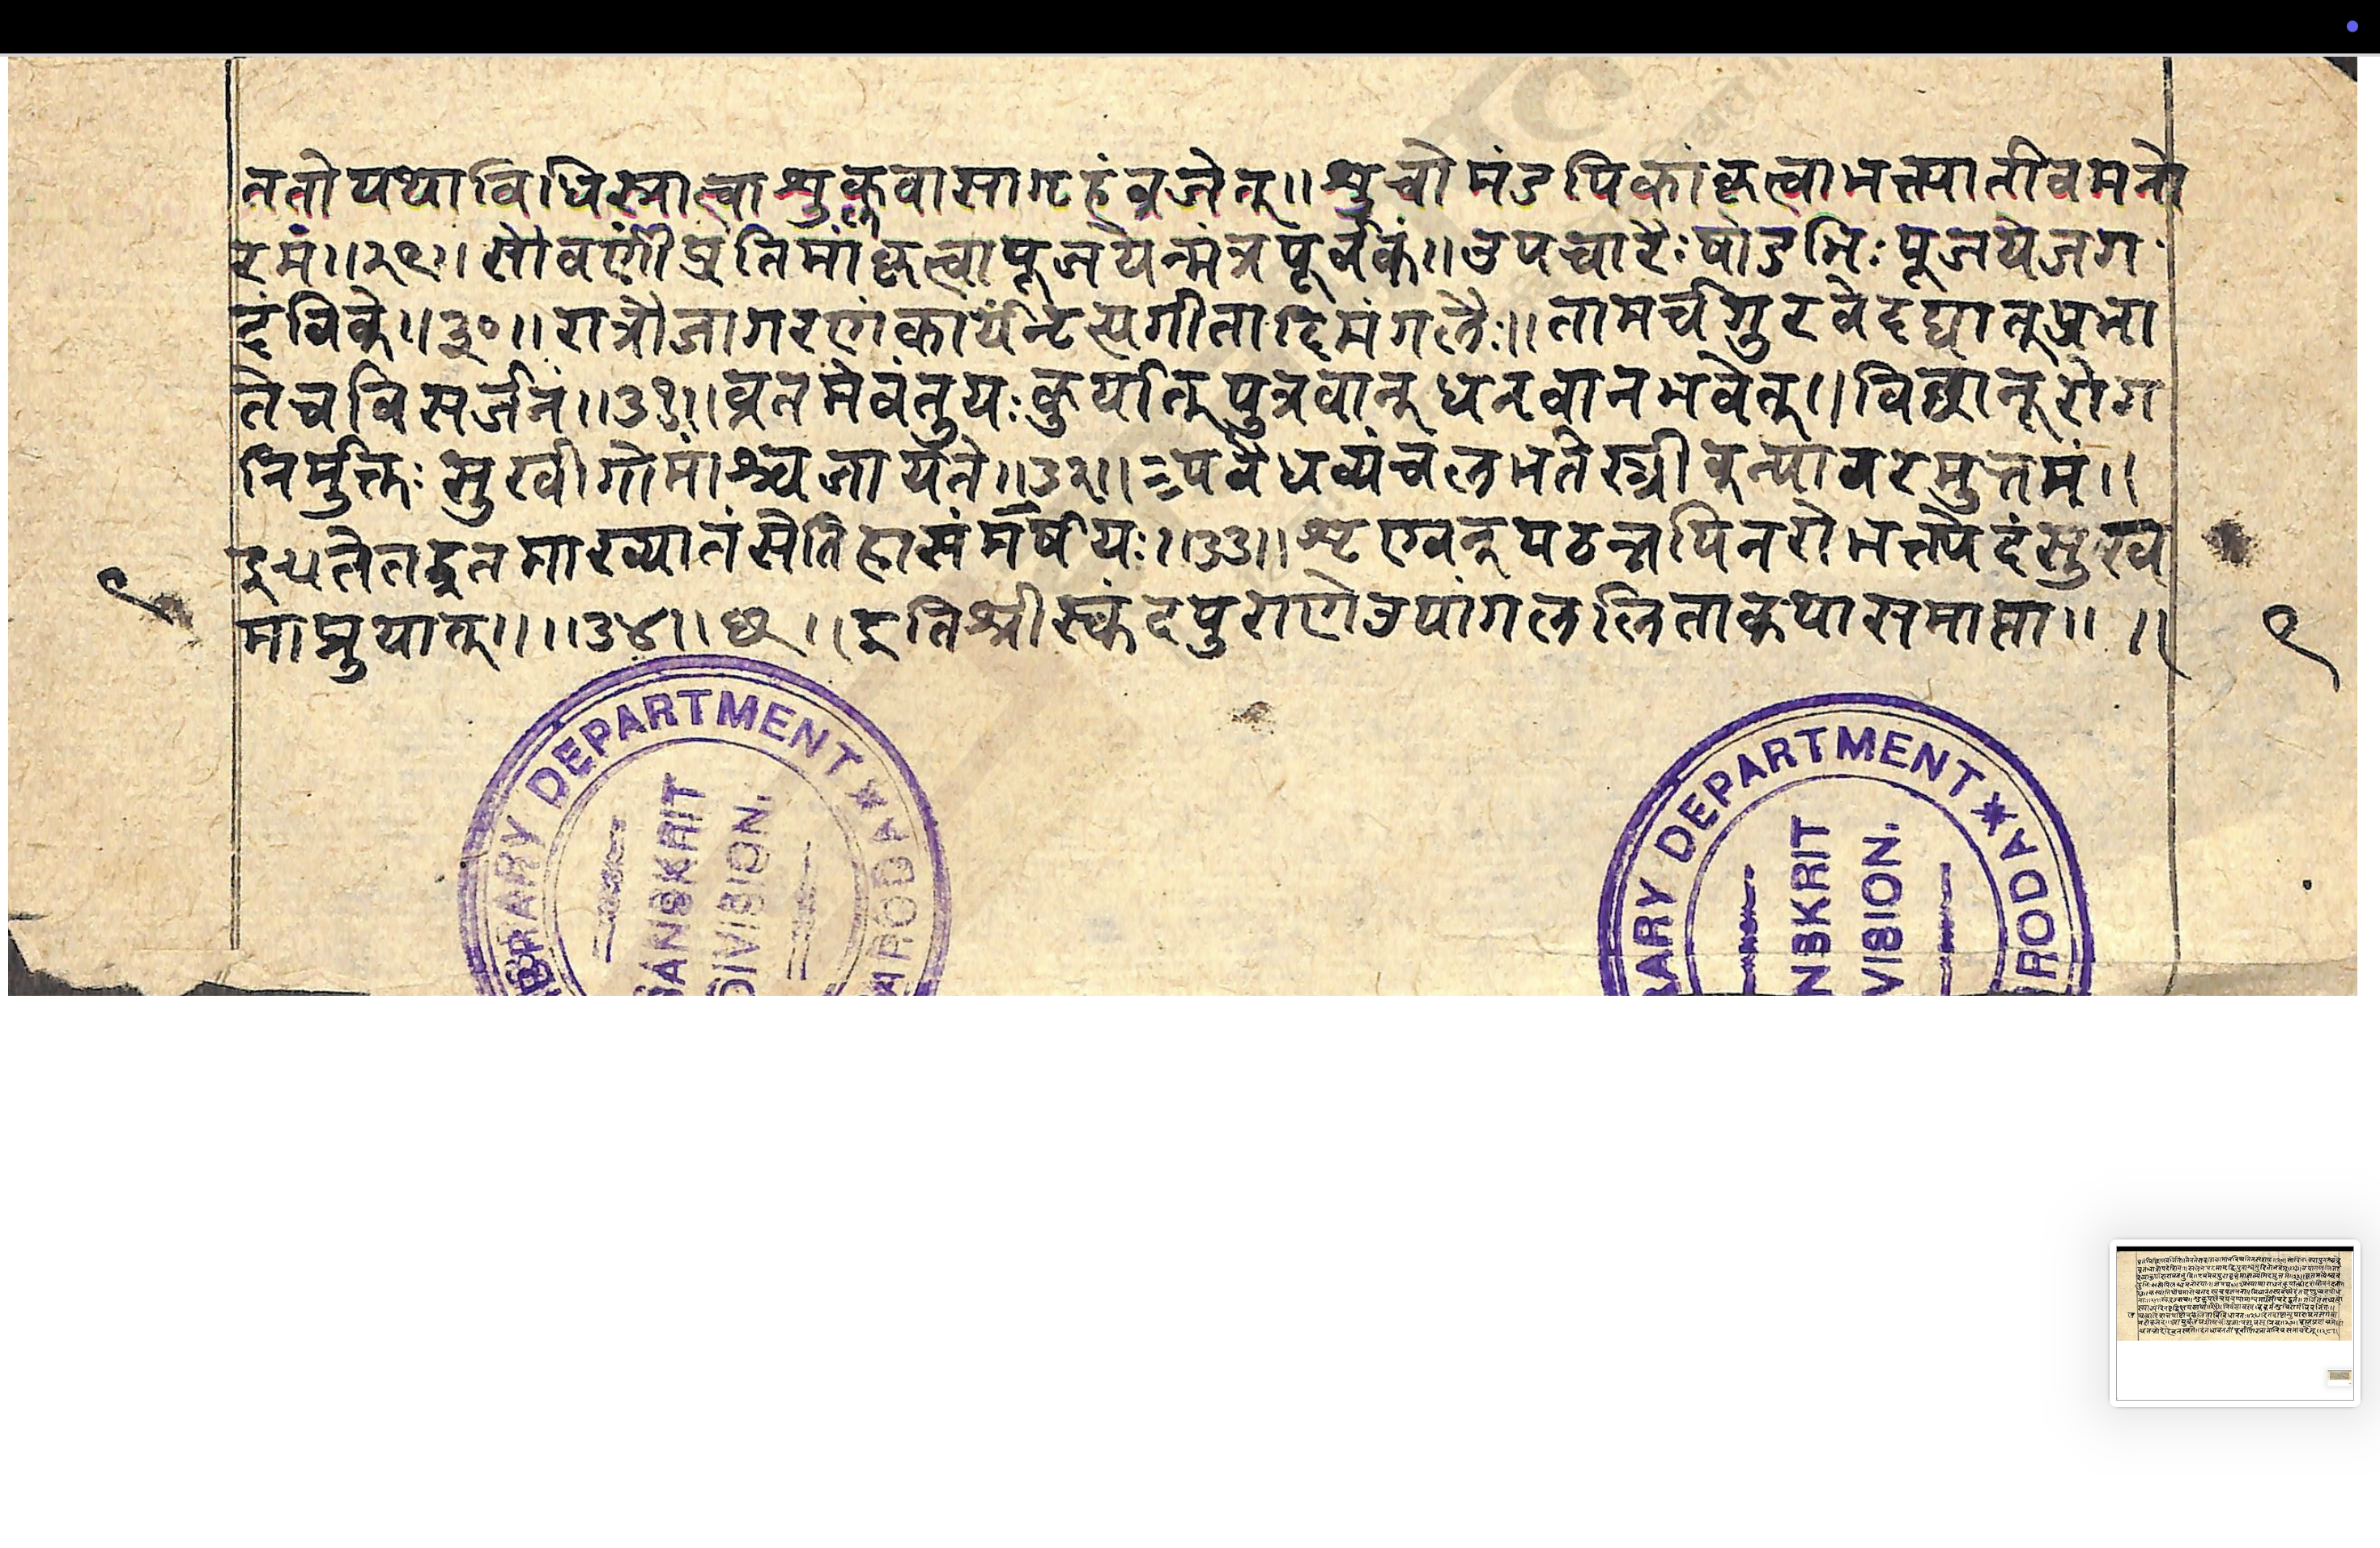 ततोयथाविधिस्नात्वाशुक्लवासागृहंव्रजेत्॥शुचौमंडपिकांकृत्वाभक्त्यातीवमनो
रमं॥२९॥सौवर्णींप्रतिमांकृत्वापूजयेन्मंत्रपूर्वकं॥उपचारैःषोडभिःपूजयेजग
दंबिके॥३०॥रात्रौजागरणंकार्यंनृत्यगीतादिमंगलैः॥तामर्चागुरवेदद्यात्प्रभा
तेचविसर्जनं॥३१॥व्रतमेवंतुयःकुर्यात्पुत्रवान्धनवानभवेत्॥विद्यान्रोग
निर्मुक्तःसुखीगोमांश्चजायते॥३२॥पवैधव्यंचलभतेस्त्रीकन्यावरमुत्तमं॥
इत्येतद्व्रतमाख्यातंसेतिहासंमहर्षयः॥३३॥शृण्वन्पठन्नपिनरोभक्त्येदंसुख
माप्नुयात्॥॥३४॥छ॥इतिश्रीस्कंदपुराणेउपांगललिताकथासमाप्ता॥ ॥
९
९
LIBRARY DEPARTMENT * BARODA
SANSKRIT
DIVISION.
LIBRARY DEPARTMENT * BARODA
SANSKRIT
DIVISION.